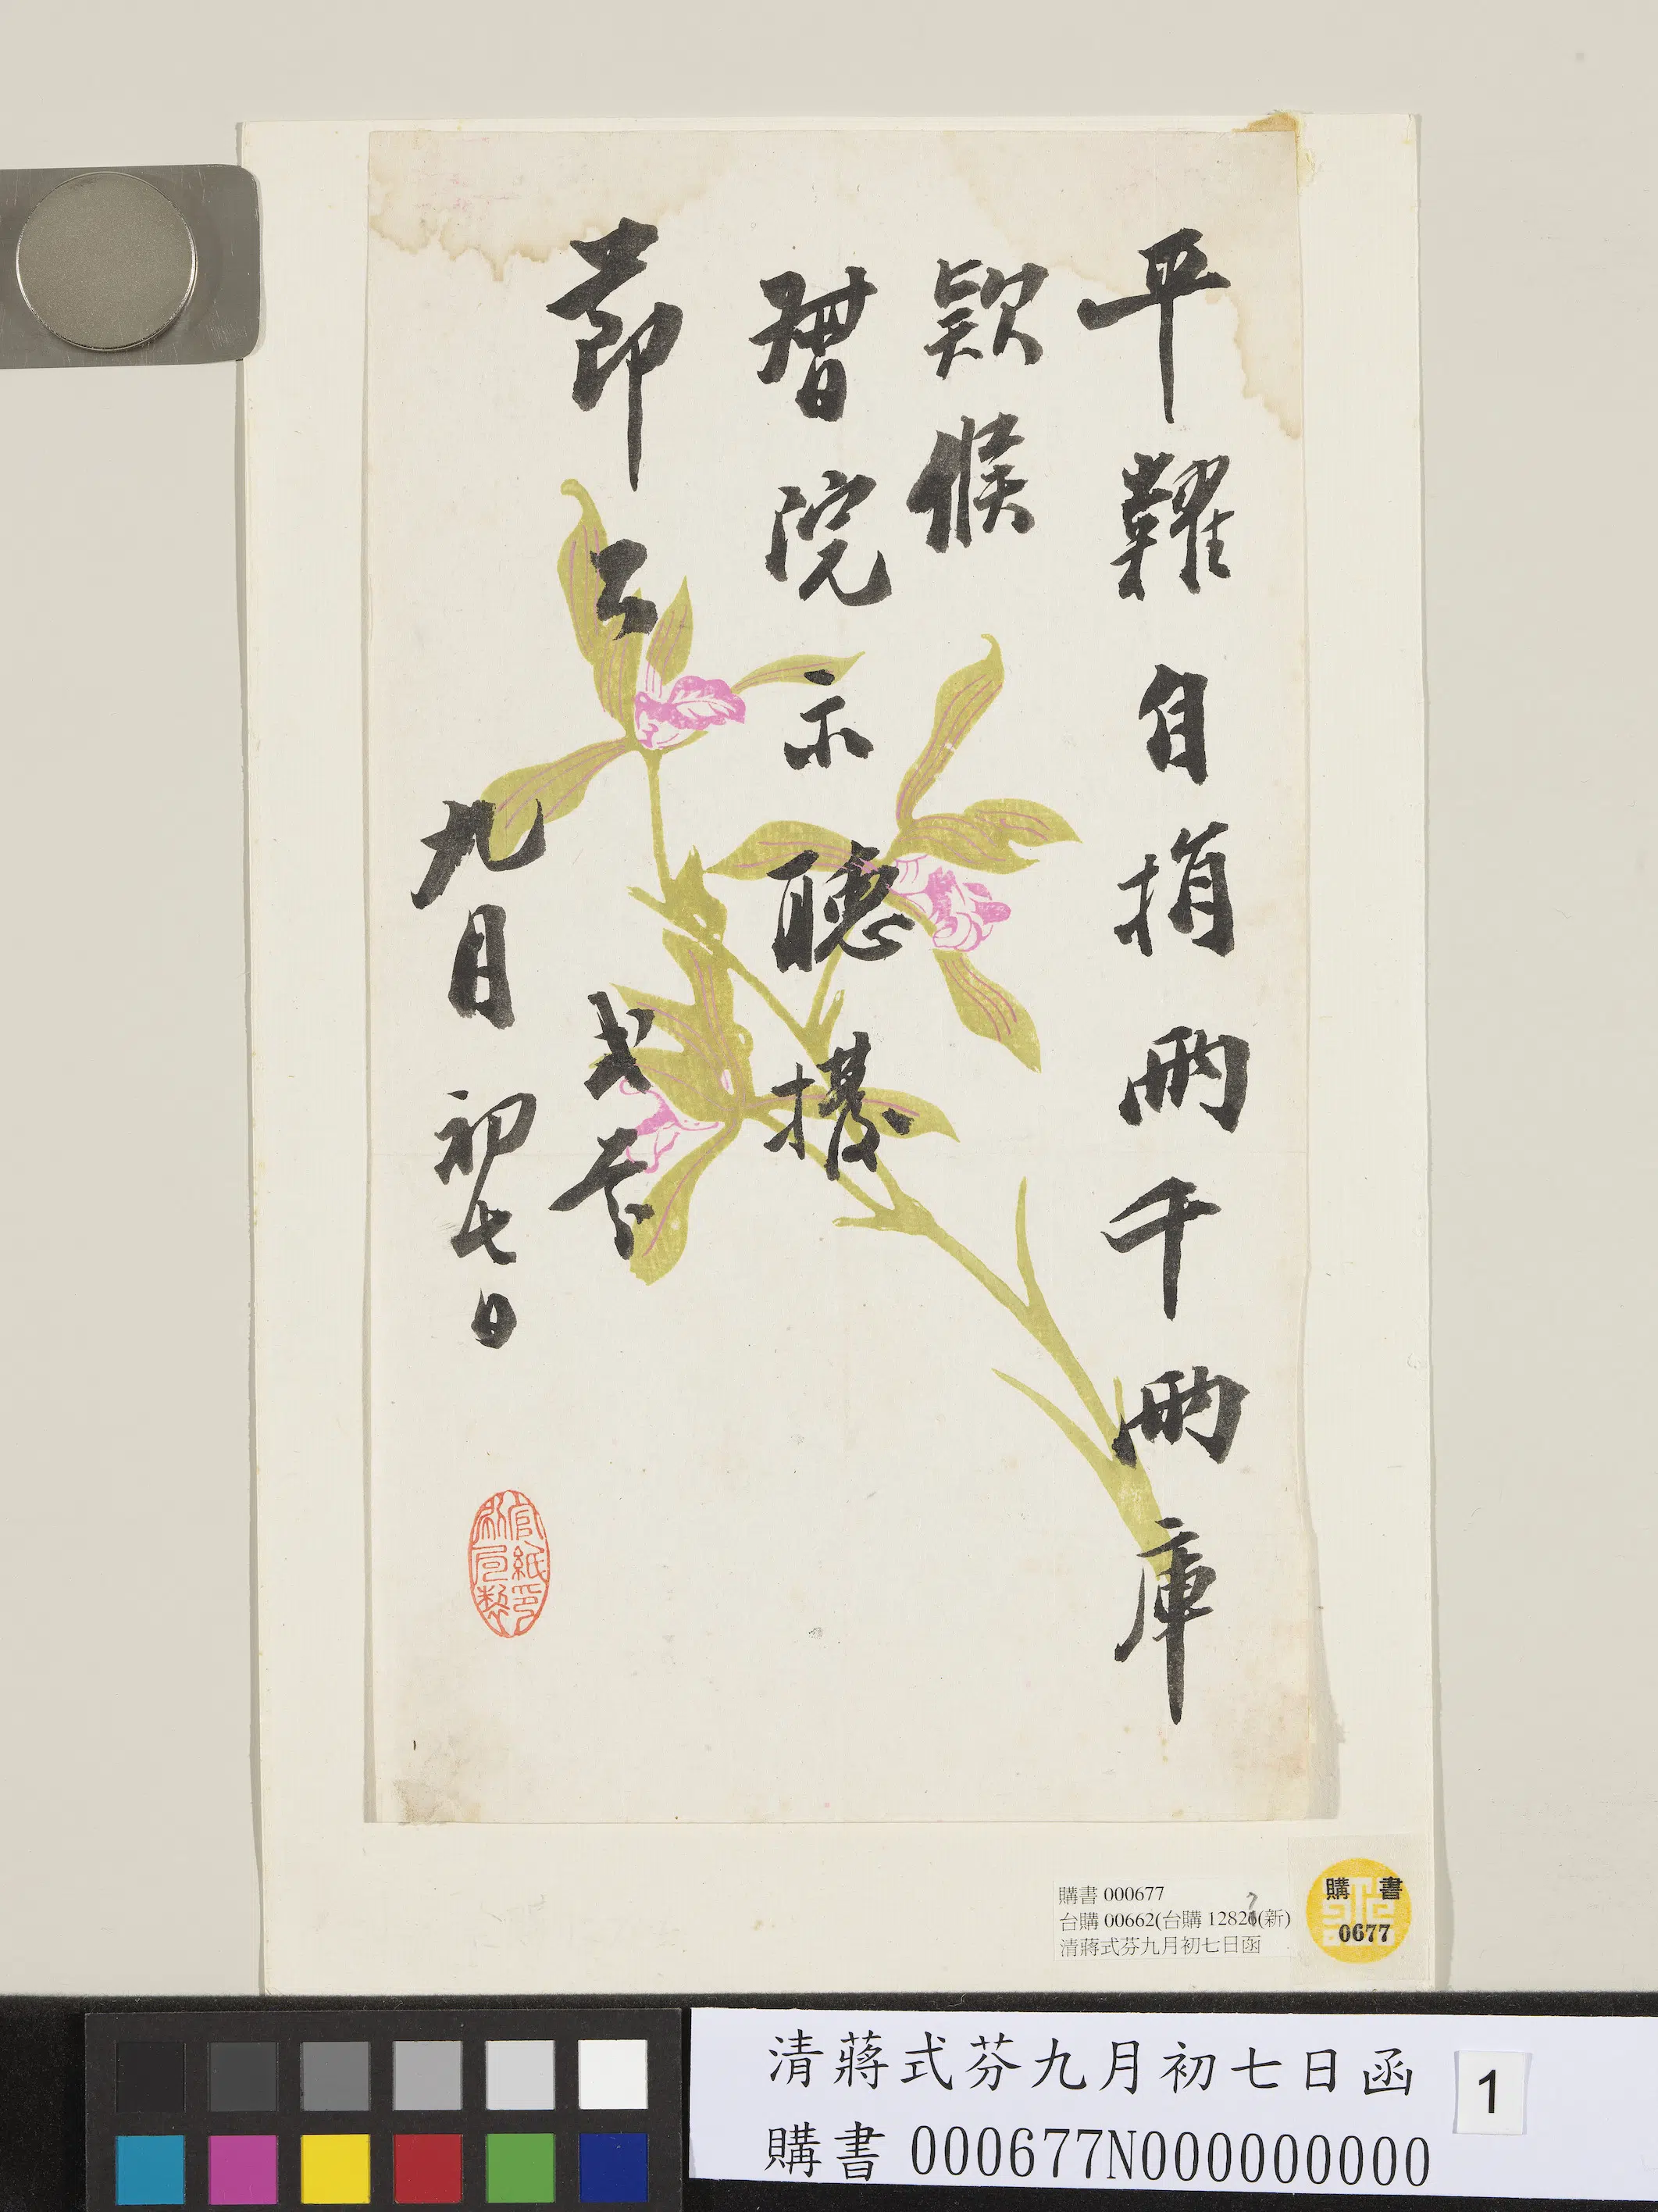 平糶自捐兩千兩庫
款候
督院示聽撥
節公 式芬
九月初七日
官紙印刷局製
購書 000677
台購 00662(台購 12827(新)
清蔣式芬九月初七日函
購書
0677
清蔣式芬九月初七日函
1
購書 000677N000000000